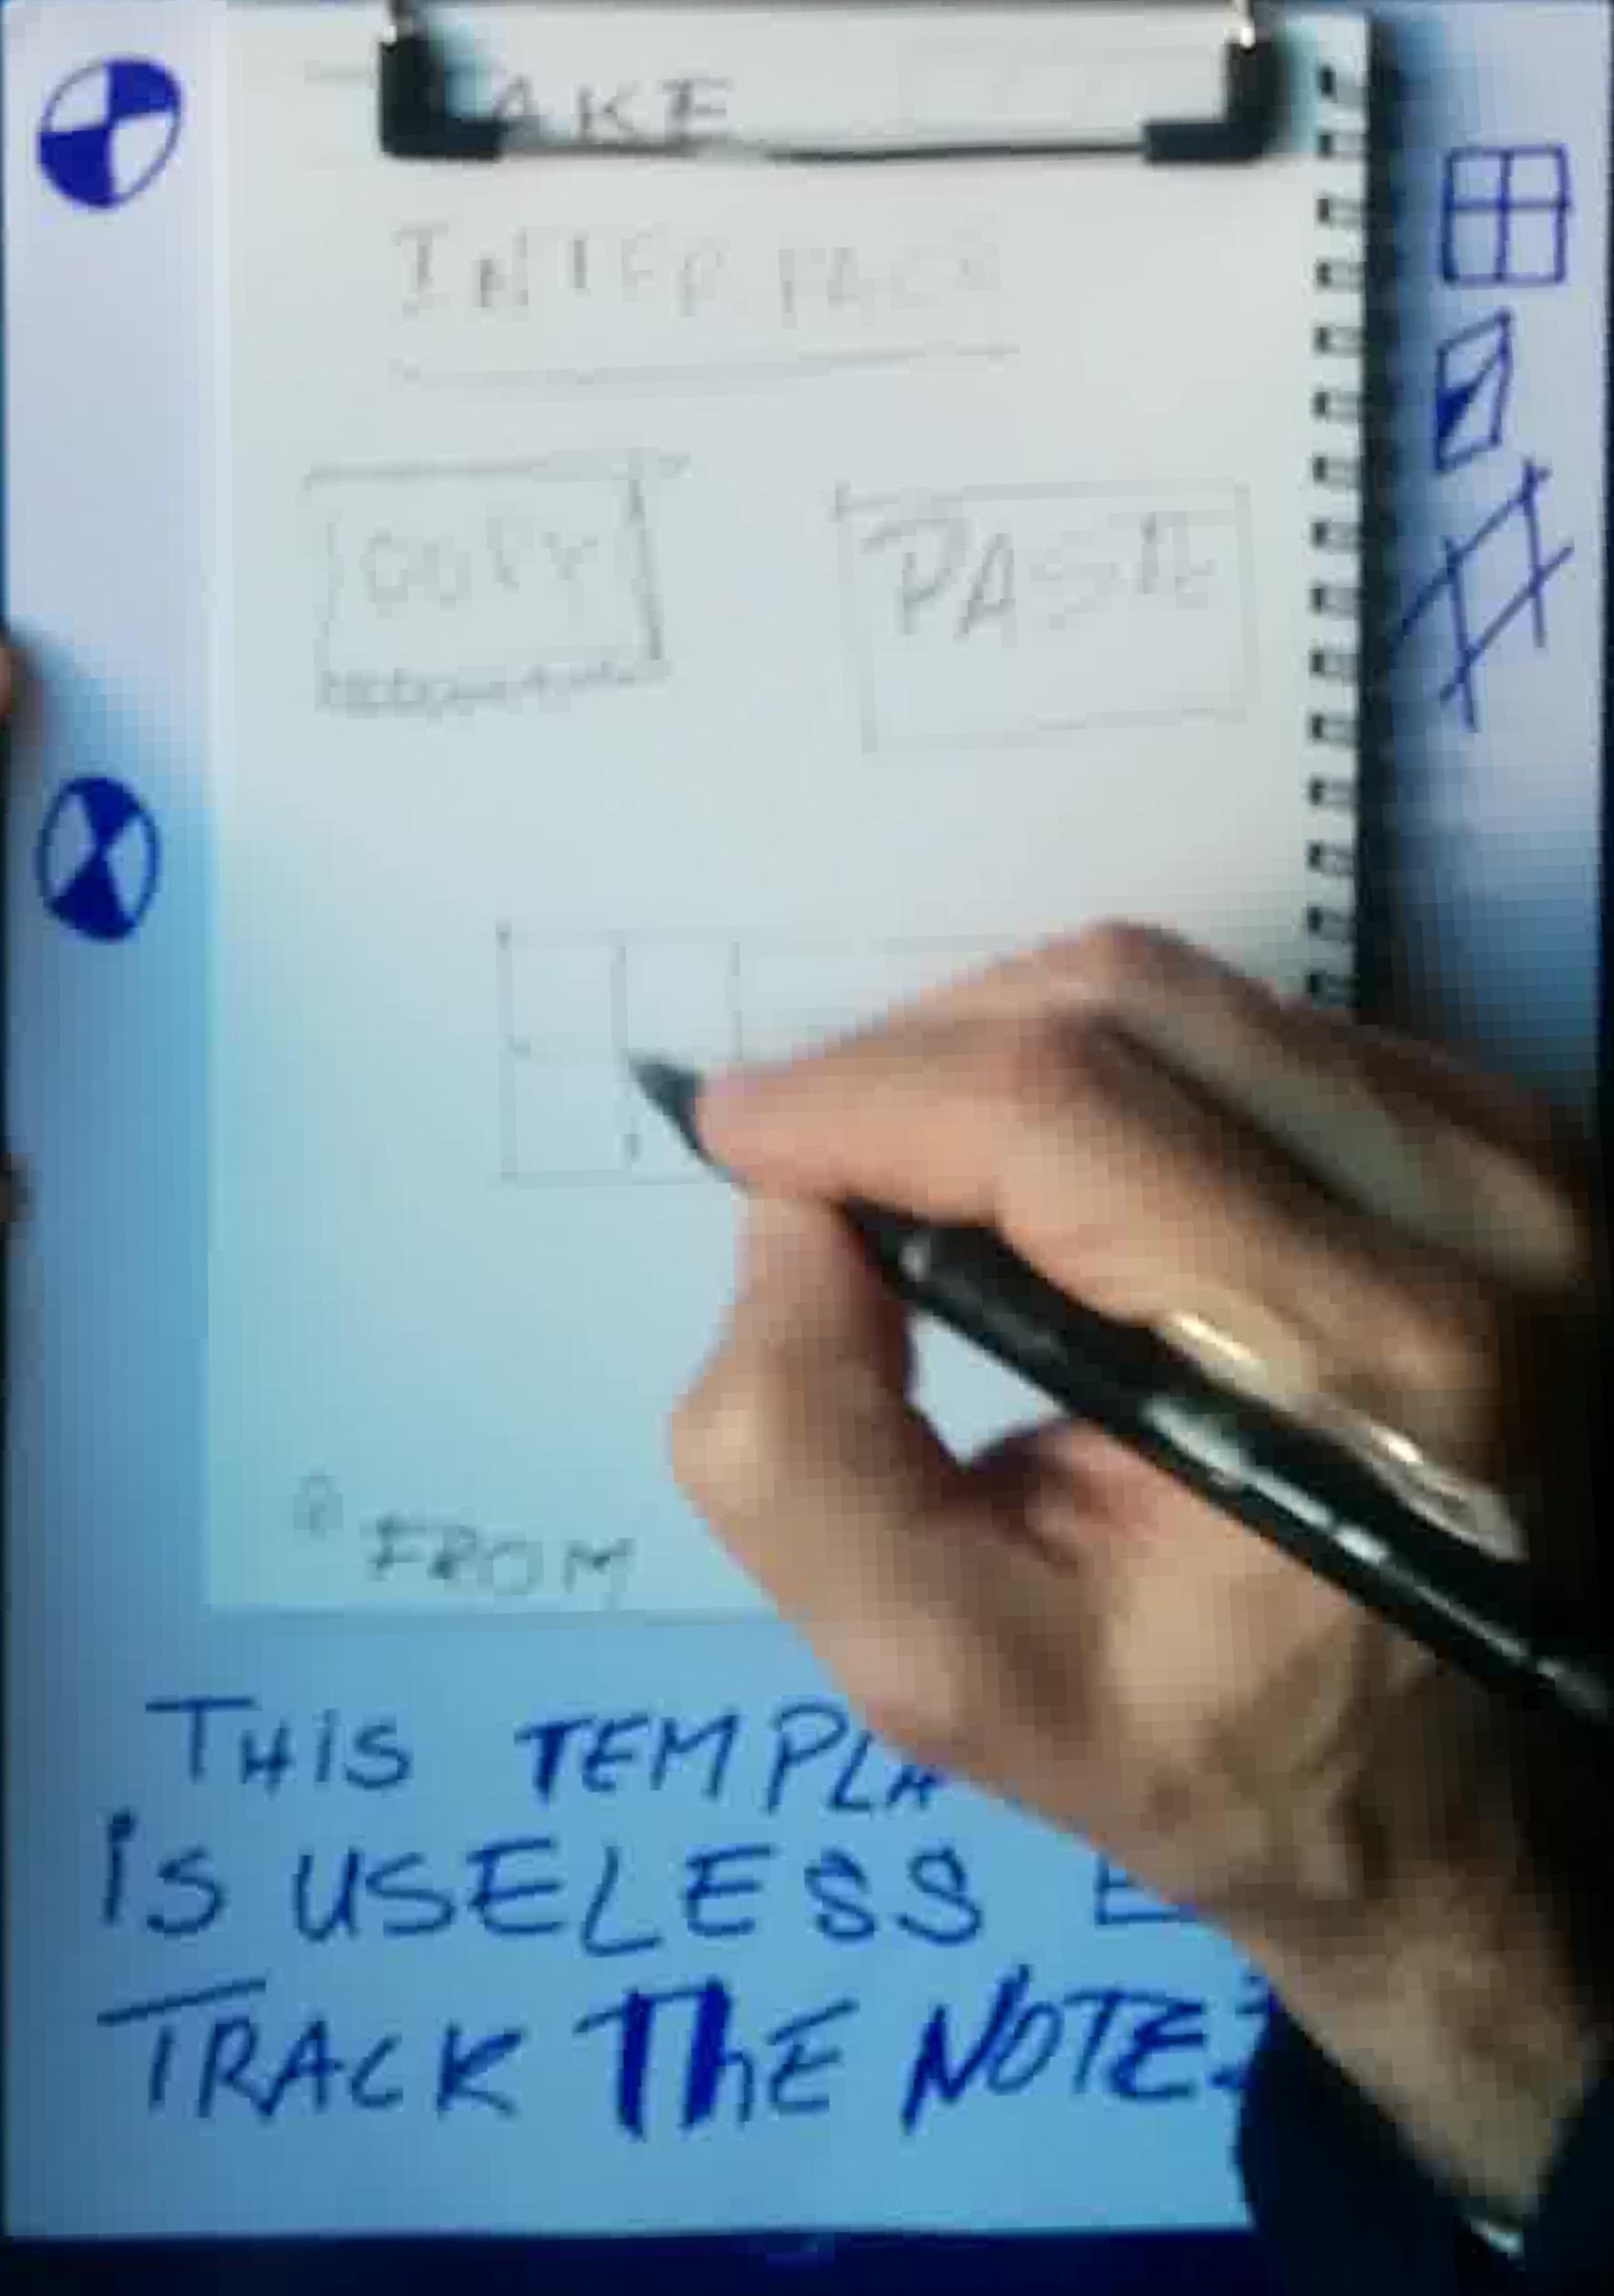 AKE
INTERFACE
COPY PASTE
FROM
THiS TEMPLA
is USELESS
TRACK ThE NOTE